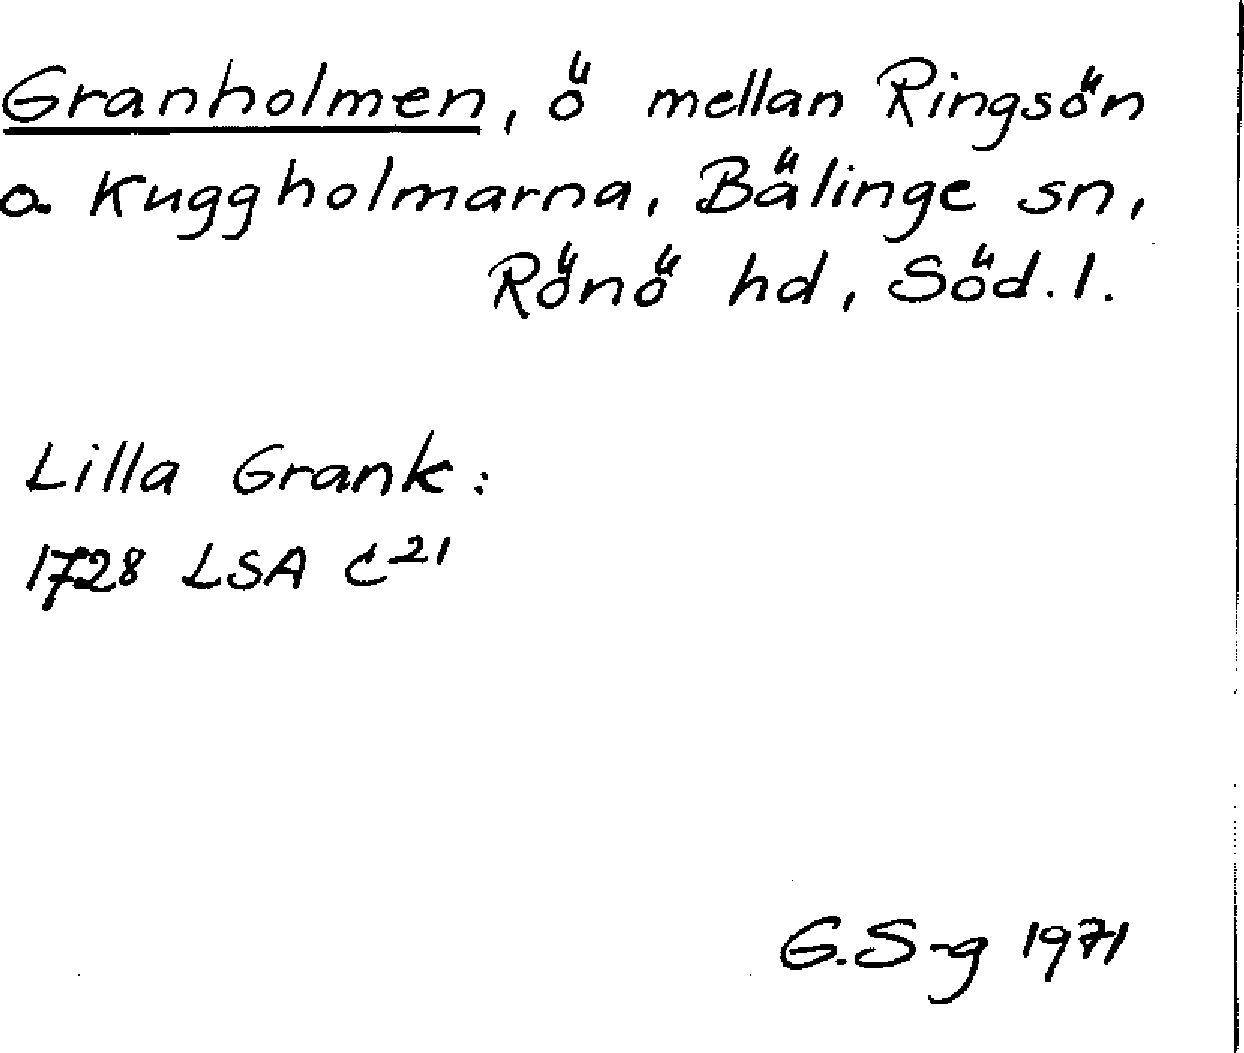 Granholmen, ö mellan Ringsön
o. Kuggholmarna, Bälinge sn,
Rönö hd, Söd. l.
Lilla Grank:
1728 LSA C²¹
G.S-g 1971